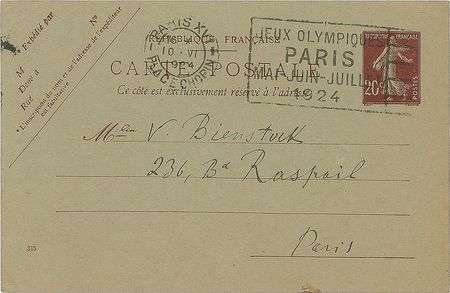 * Expédié par Nº
M
Dem^t à
Rue
* L'inscription du nom et de l'adresse de l'expéditeur
est facultative.
PARIS XVI
18
10 - VI
1924
PLACE CHOPIN
JEUX OLYMPIQUES
PARIS
MAI-JUIN-JUILLET
1924
RÉPUBLIQUE FRANÇAISE
CARTE POSTALE
Ce côté est exclusivement réservé à l'adresse
20c
POSTES
V. Bienstock
236, Bd Raspail
Paris
315